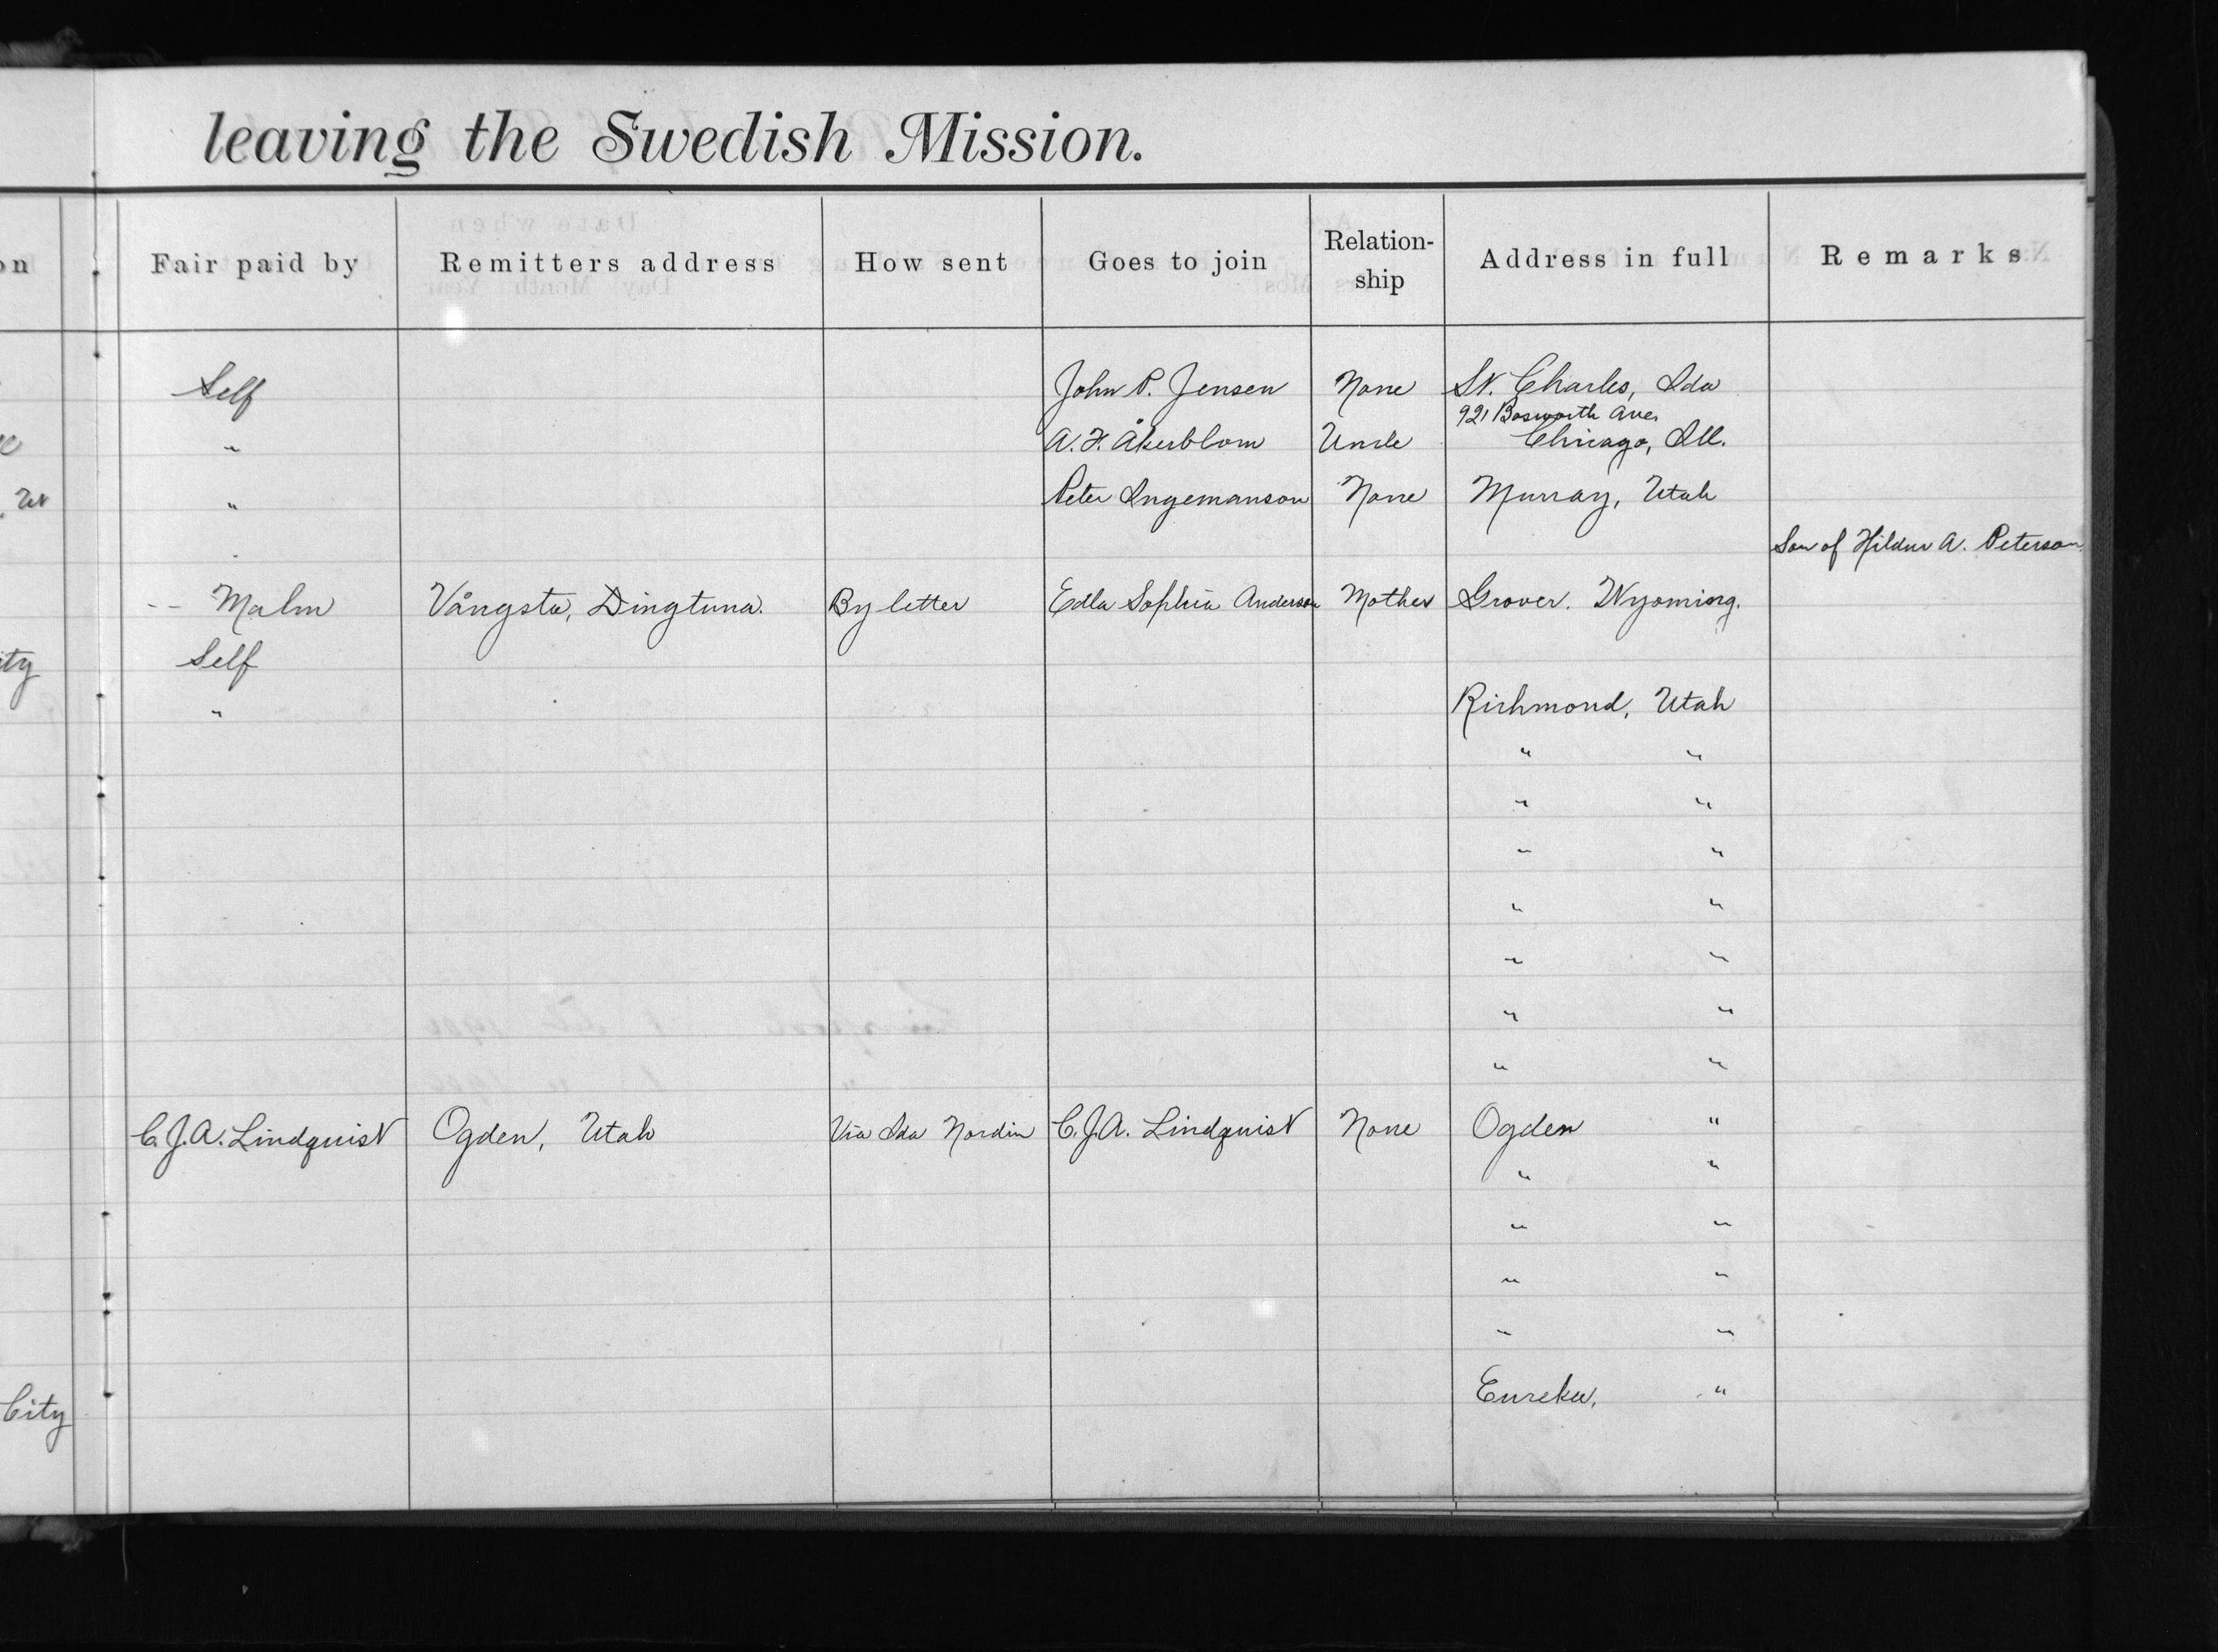 leaving the Swedish Mission.
on Fair paid by Remitters address How sent Goes to join Relation-ship Address in full Remarks
Self John P. Jensen None St. Charles, Ida
921 Bosworth Ave.
" A. F. Åkerblom Uncle Chicago, Ill.
, Ut " Peter Ingemanson None Murray, Utah
Son of Hildur A. Peterson
-- Malm Vångsta, Dingtuna. By letter Edla Sophia Anderson Mother Grover. Wyoming.
ity Self
" Richmond, Utah
" "
" "
" "
" "
" "
" "
" "
C. J. A. Lindquist Ogden, Utah Via Ida Nordin C. J. A. Lindquist None Ogden "
" "
" "
" "
" "
City Eureka, "